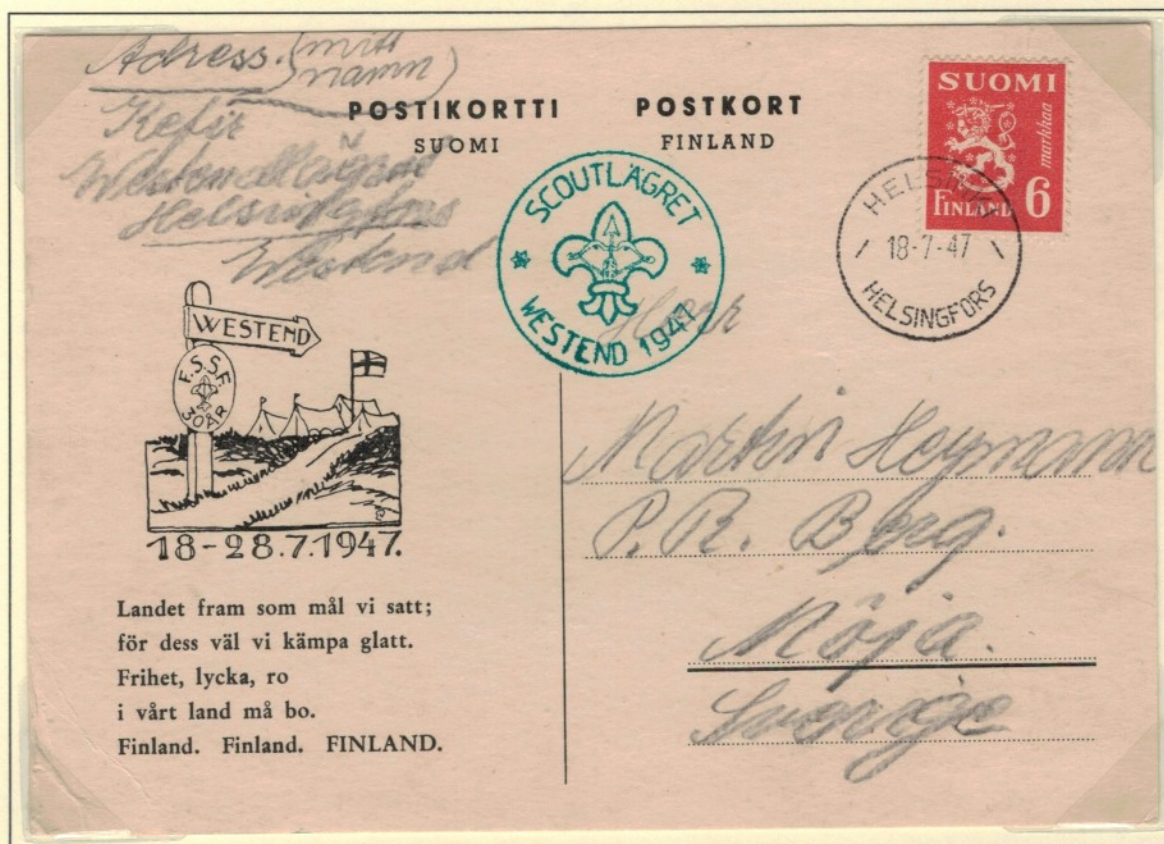 Adress. (mitt
namn)
Kefir
Westendlägret
Helsingfors
Westend
POSTIKORTTI
SUOMI
POSTKORT
FINLAND
SUOMI
markkaa
FINLAND 6
HELSINKI
18-7-47
HELSINGFORS
SCOUTLÄGRET
WESTEND 1947
WESTEND
F.S.S.F.
30 ÅR
18-28.7.1947.
Landet fram som mål vi satt;
för dess väl vi kämpa glatt.
Frihet, lycka, ro
i vårt land må bo.
Finland. Finland. FINLAND.
Martin Heymann
P.R. Berg.
Möja.
Sverige